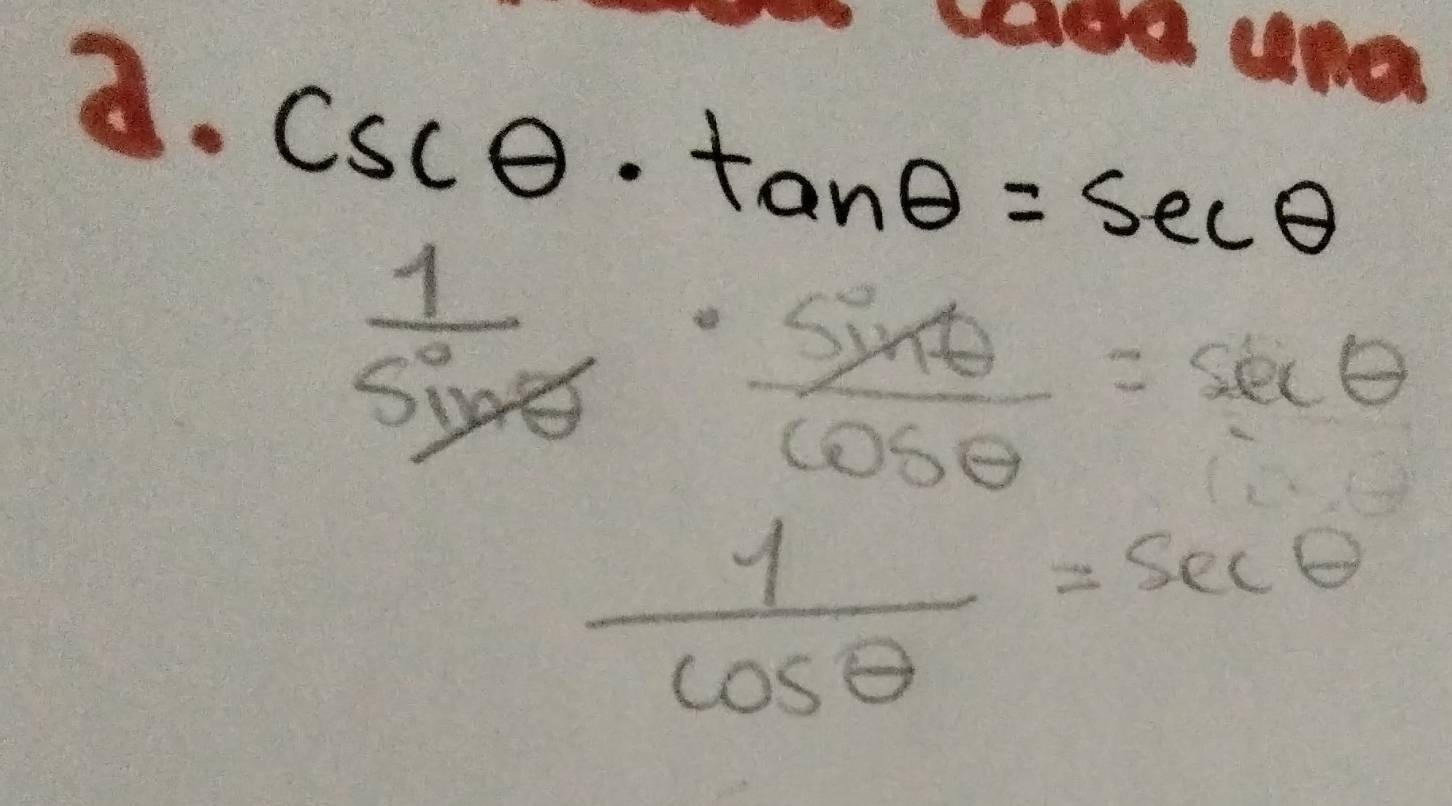 cada una
a. csc θ · tan θ = sec θ
1/sin θ · sin θ/cos θ = sec θ
1/cos θ = sec θ